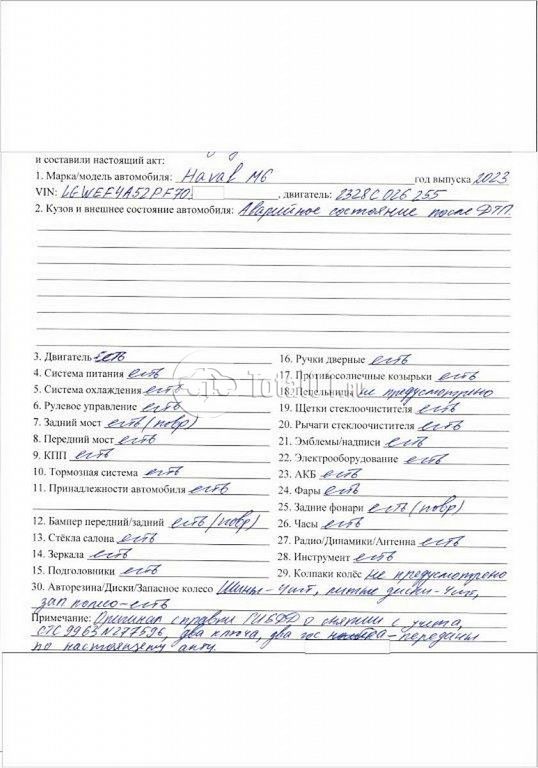 и составили настоящий акт:
1. Марка/модель автомобиля: Haval M6 год выпуска 2023
VIN: LGWEF4A52PF70, двигатель: 2328C026255
2. Кузов и внешнее состояние автомобиля: Аварийное состояние после ДТП.
3. Двигатель есть
4. Система питания есть
5. Система охлаждения есть
6. Рулевое управление есть
7. Задний мост есть (повр)
8. Передний мост есть
9. КПП есть
10. Тормозная система есть
11. Принадлежности автомобиля есть
12. Бампер передний/задний есть (повр)
13. Стёкла салона есть
14. Зеркала есть
15. Подголовники есть
16. Ручки дверные есть
17. Противосолнечные козырьки есть
18. Пепельница не предусмотрено
19. Щетки стеклоочистителя есть
20. Рычаги стеклоочистителя есть
21. Эмблемы/надписи есть
22. Электрооборудование есть
23. АКБ есть
24. Фары есть
25. Задние фонари есть (повр)
26. Часы есть
27. Радио/Динамики/Антенна есть
28. Инструмент есть
29. Колпаки колёс не предусмотрено
30. Авторезина/Диски/Запасное колесо Шины - 4шт, литые диски - 4шт,
зап колесо - есть
Примечание: Оригинал справки ГИБДД о снятии с учета,
СТС 9963 N277596, два ключа, два гос - переданы
по настоящему акту.